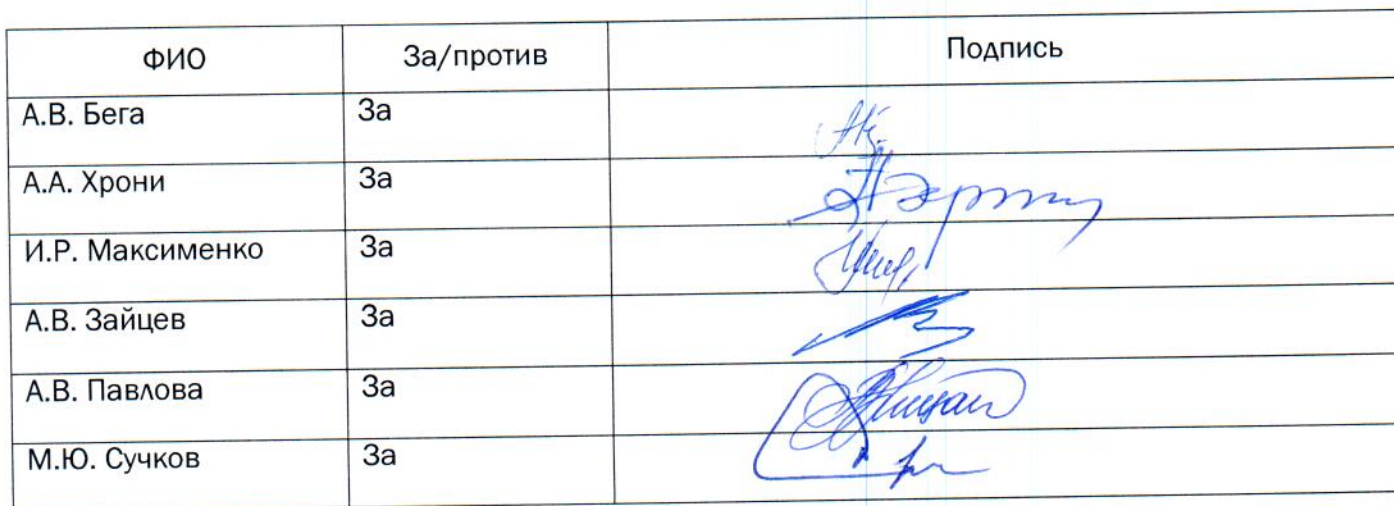 ФИО За/против Подпись
А.В. Бега За
А.А. Хрони За
И.Р. Максименко За
А.В. Зайцев За
А.В. Павлова За
М.Ю. Сучков За